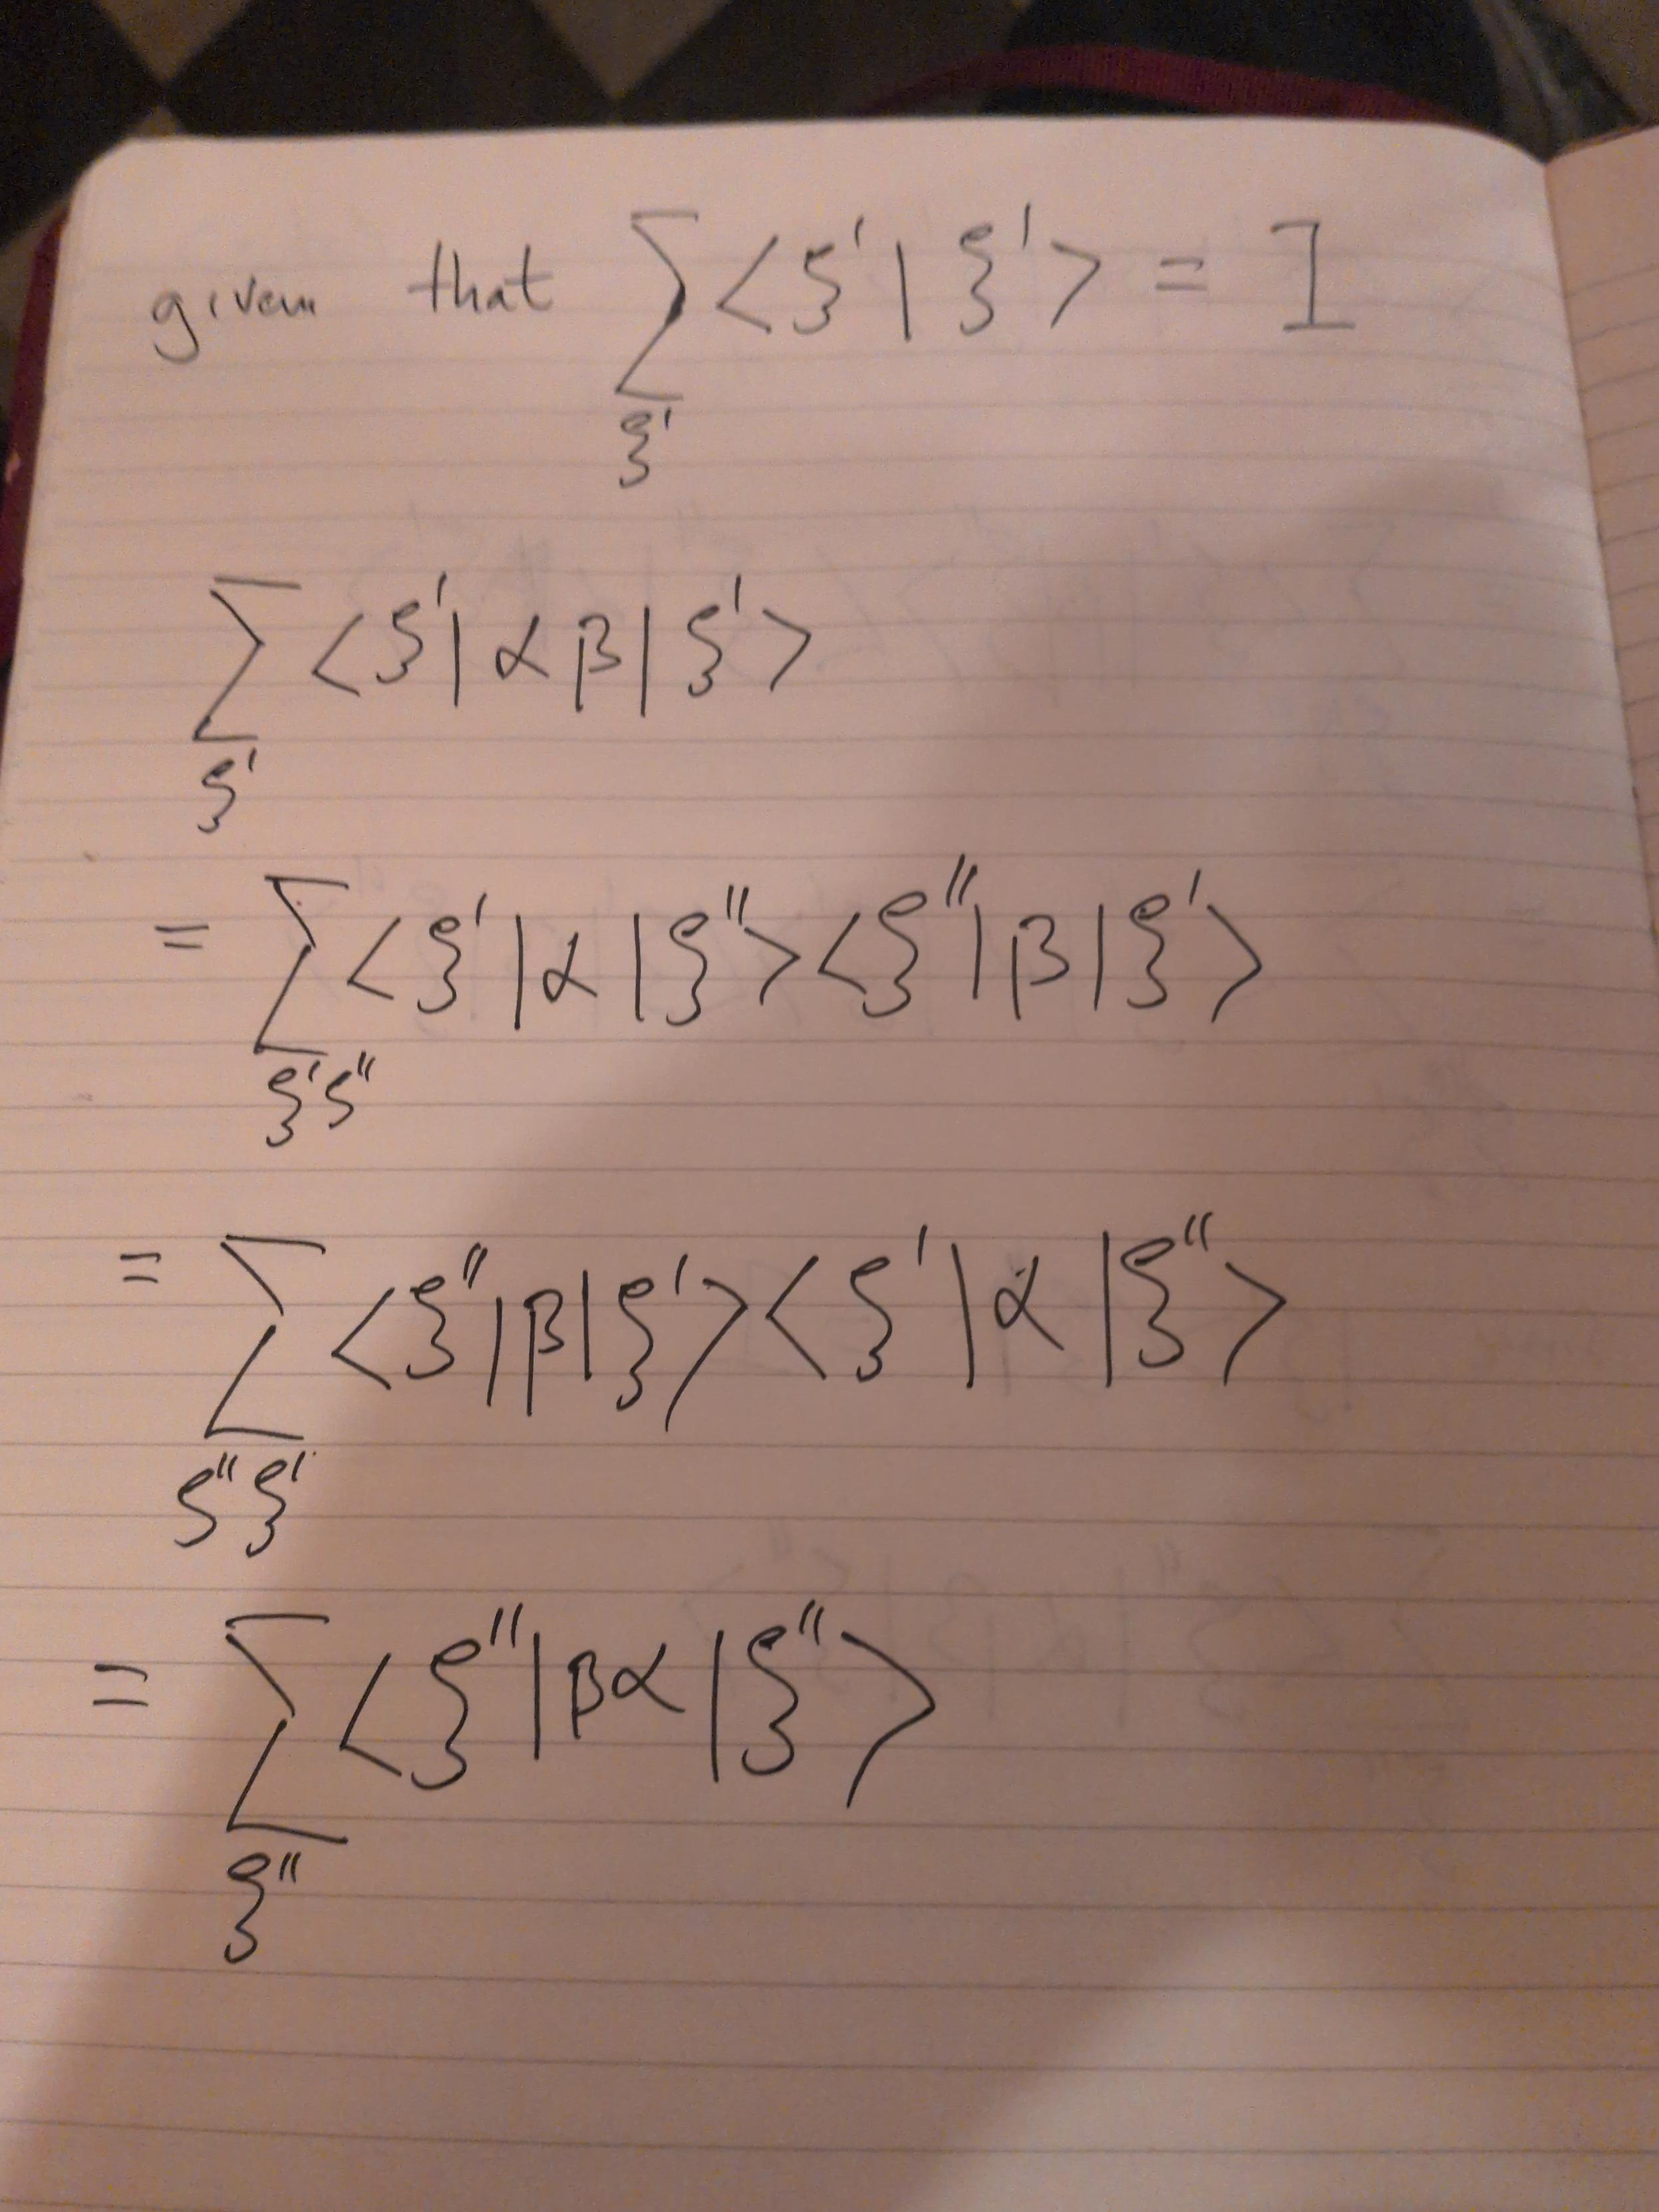 given that ∑_{ξ'} <ξ'|ξ'> = 1
∑_{ξ'} <ξ'|αβ|ξ'>
= ∑_{ξ'ξ''} <ξ'|α|ξ''><ξ''|β|ξ'>
= ∑_{ξ''ξ'} <ξ''|β|ξ'><ξ'|α|ξ''>
= ∑_{ξ''} <ξ''|βα|ξ''>